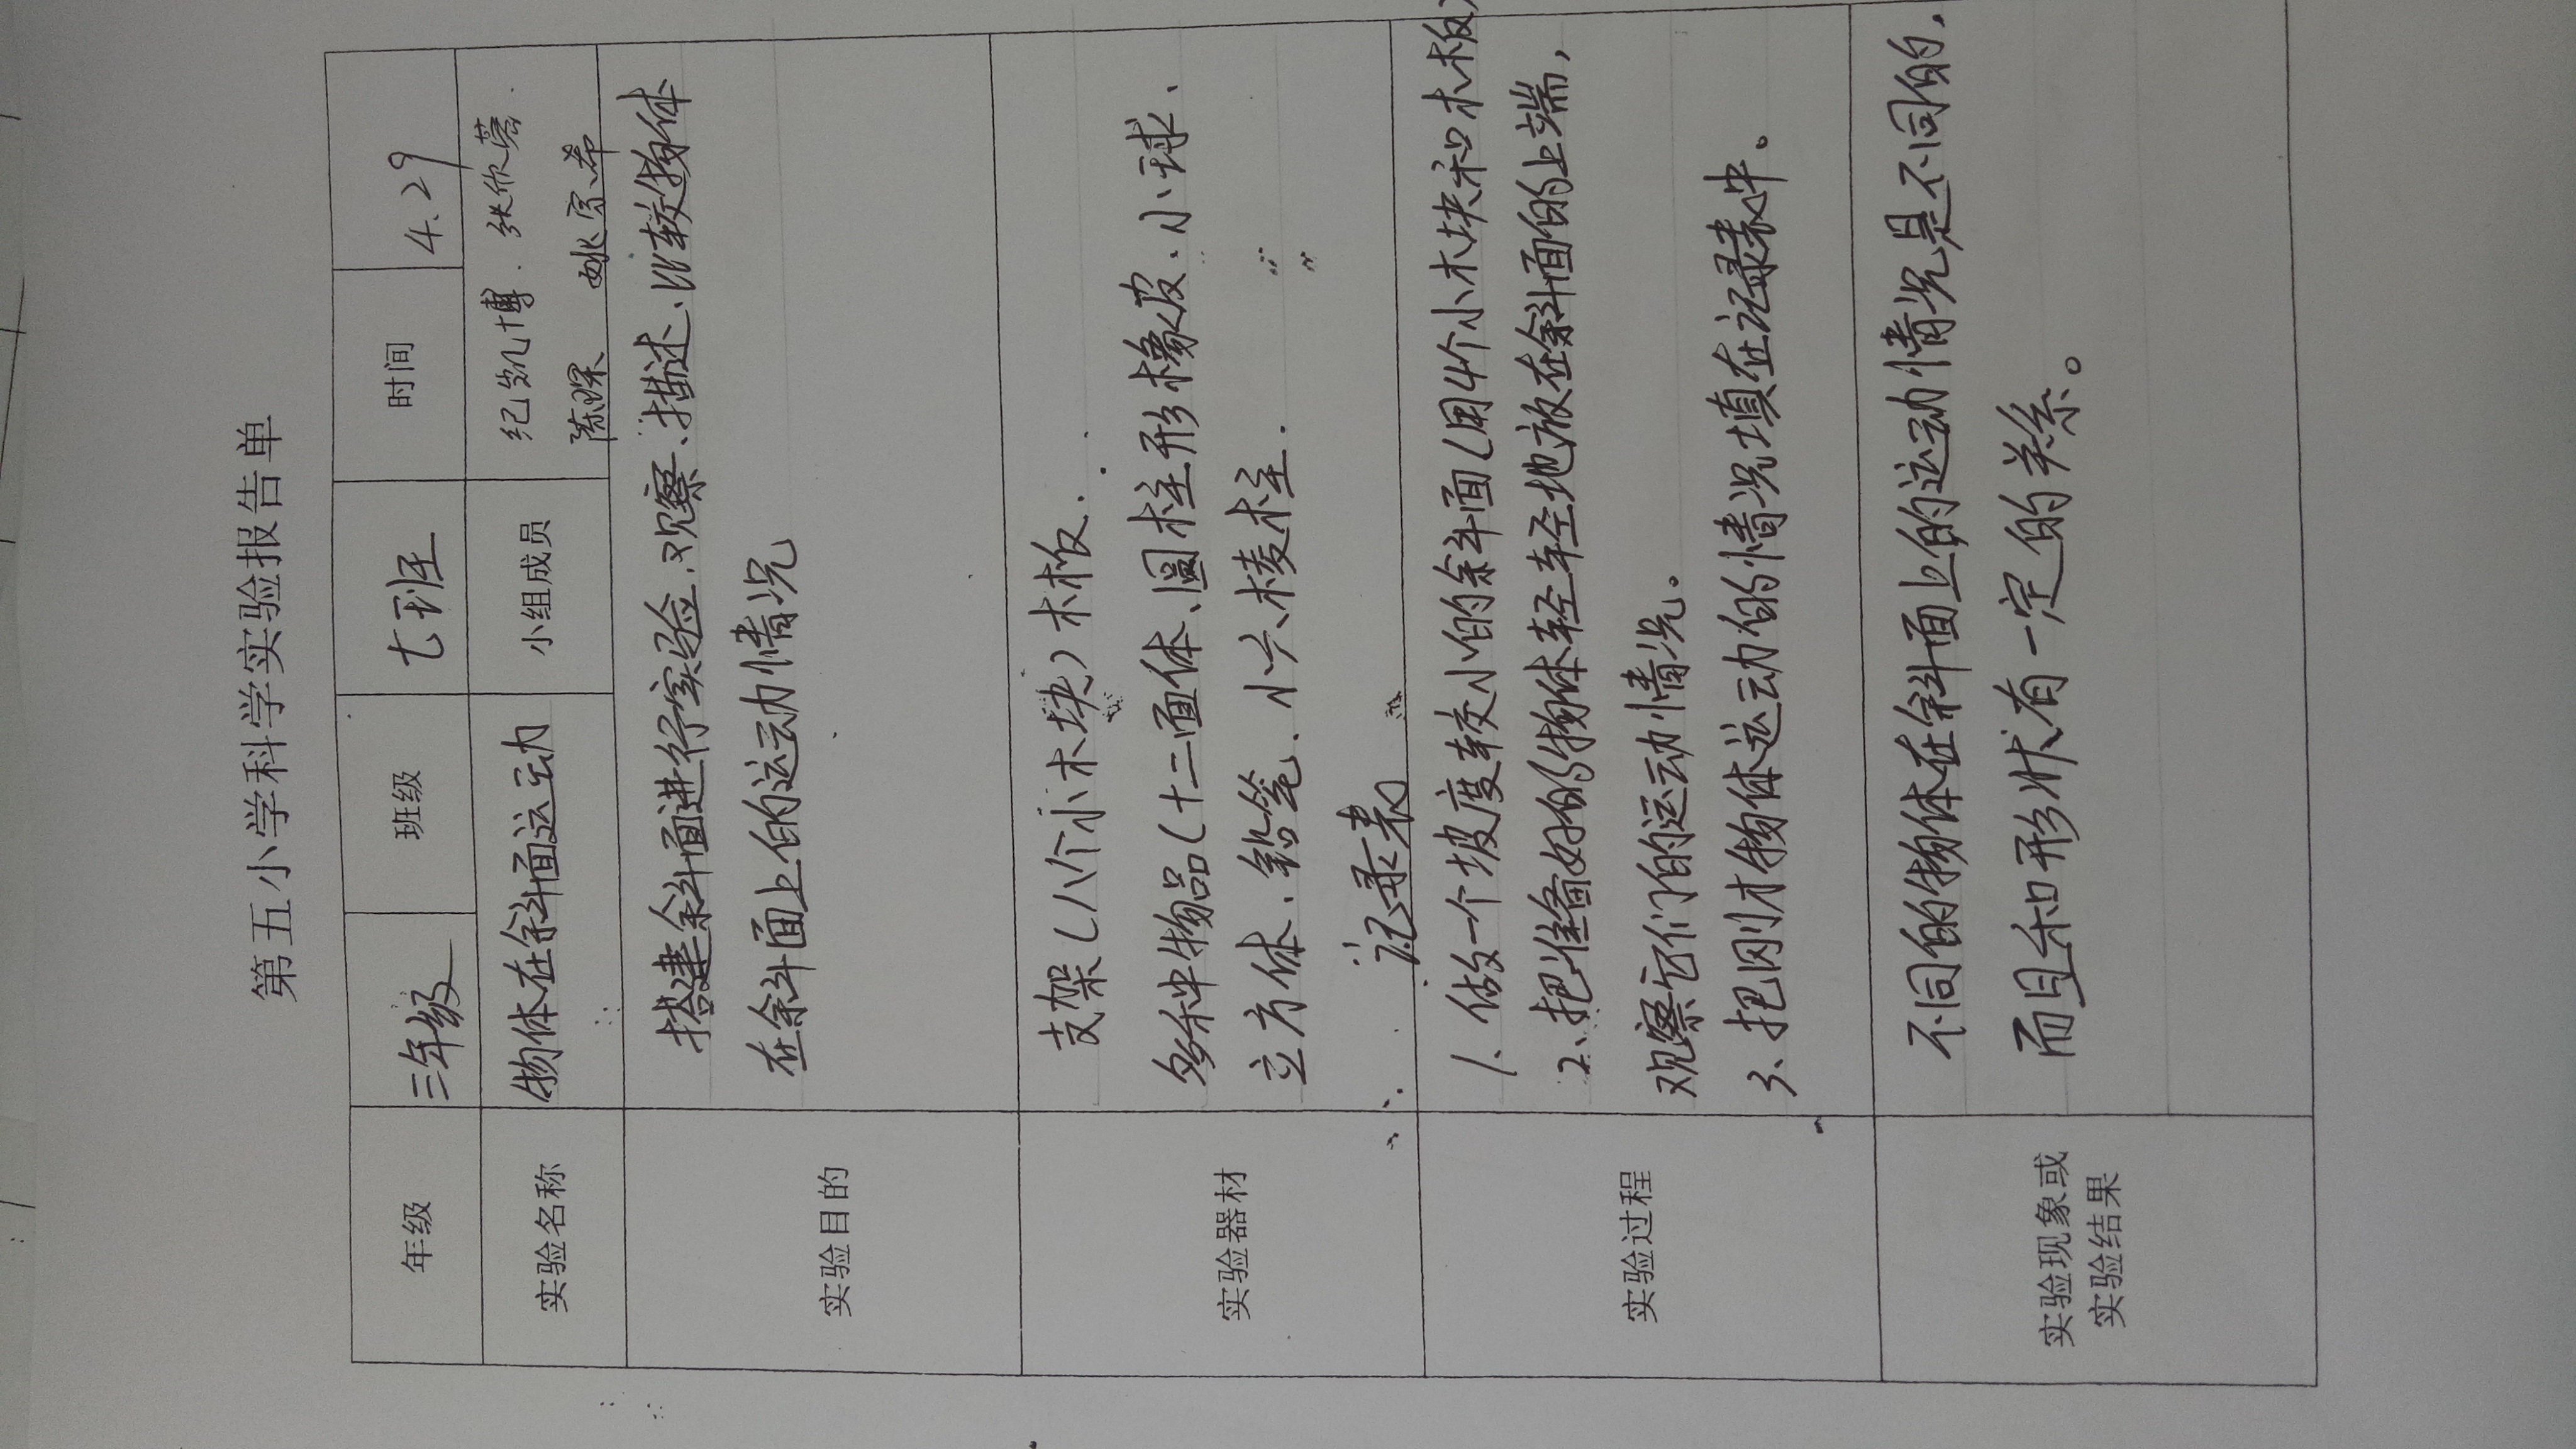 第五小学科学实验报告单
年级 三年级 班级 七班 时间 4.29
实验名称 物体在斜面运动 小组成员 纪凯博、张欣蓉、
陈琛 姚宗希
实验目的
搭建斜面进行实验、观察、描述、比较物体
在斜面上的运动情况
实验器材
支架(八个小木块)木板、
多种物品(十二面体、圆柱形橡皮、小球、
立方体、铅笔、小六棱柱、
记录表
实验过程
1、做一个坡度较小的斜面(用4个小木块和木板)
2、把准备好的物体轻轻地放在斜面的上端,
观察它们的运动情况。
3、把刚才物体运动的情况填在记录表中。
实验现象或
实验结果
不同的物体在斜面上的运动情况是不同的,
而且和形状有一定的关系。